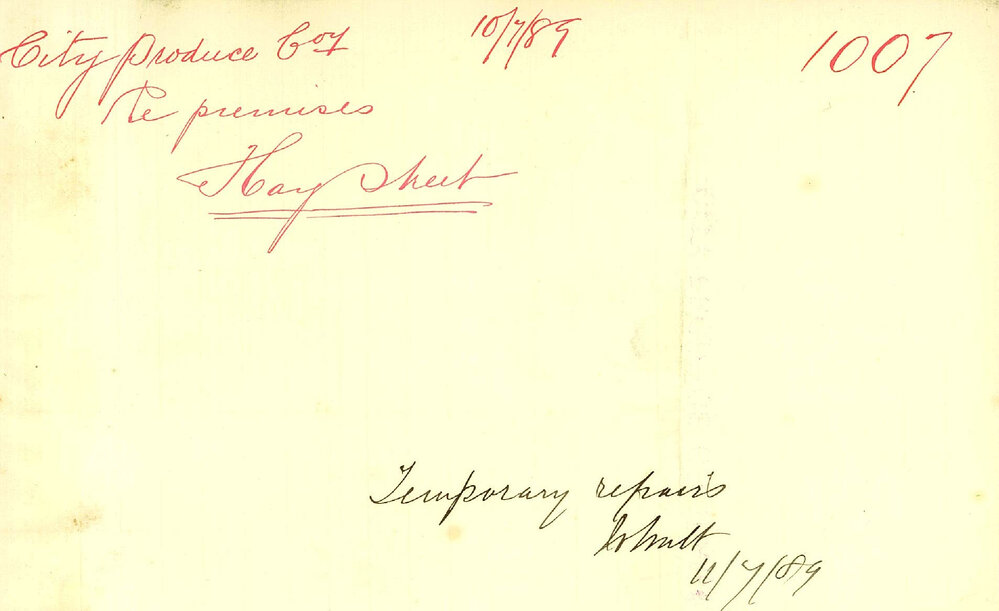 City Produce Coy 10/7/89 1007
Re premises
Hay Street
Temporary repairs
11/7/89